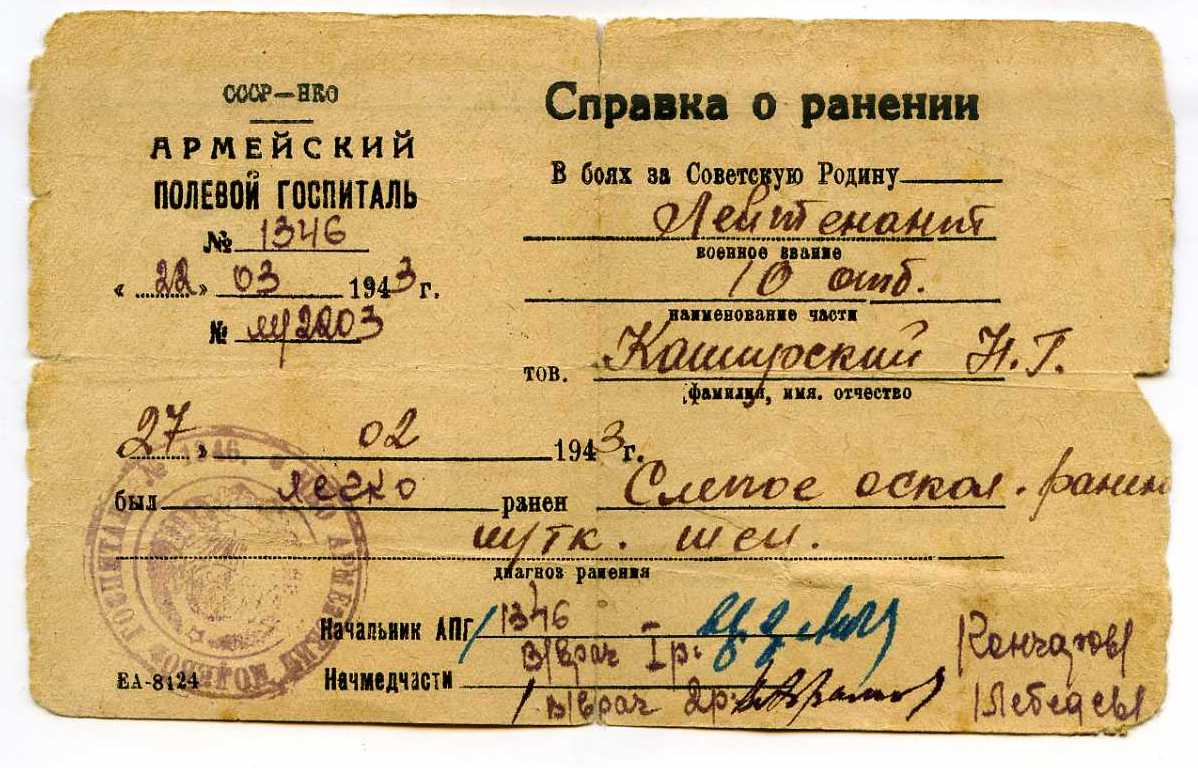 СССР—НКО
АРМЕЙСКИЙ
ПОЛЕВОЙ ГОСПИТАЛЬ
№ 1346
« 22 » 03 1943 г.
№ 2203
Справка о ранении
В боях за Советскую Родину
Лейтенант
военное звание
10 отб.
наименование части
тов. Каширский Н.Г.
фамилия, имя. отчество
27 » 02 1943 г.
был легко ранен Слепое оскол. ранен
мягк. шеи.
диагноз ранения
Начальник АПГ 1346
в/врач I р:
Начмедчасти
в/врач 2 р:
/Кончатов/
/Лебедев/
ЕА-8124